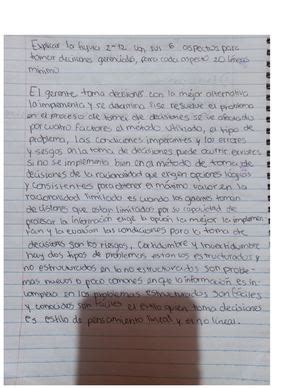 Explicar la figura 2-12 con sus 6 aspectos para
tomar decisiones gerenciales, para cada aspecto 20 lineas
minimo
El gerente toma decisiones con la mejor alternativa
la implementa y se determina si se resuelve el problema
en el proceso de toma de decisiones se ve afectado
por cuatro factores el método utilizado, el tipo de
problema, las condiciones imperantes y los errores
y sesgos en la toma de decisiones puede ocurrir errores
si no se implementa bien en el método de toma de
decisiones de la racionalidad que eligen opciones lógicas
y consistentes para obtener el máximo valor en la
racionalidad limitada es cuando los gerentes toman
decisiones que estan limitados por su capacidad de
procesar la información elige la opción la mejor la implemen
tan y la evalúan las condiciones para la toma de
decisiones son los riesgos, certidumbre y incertidumbre
hay dos tipos de problemas estan los estructurados y
no estructurados en los no estructurados son proble-
mas nuevos o poco comunes en que la información es in-
completa en los problemas estructurados son fáciles
y conocidos son fáciles el estilo quien toma decisiones
es estilo de pensamiento lineal y el no lineal.